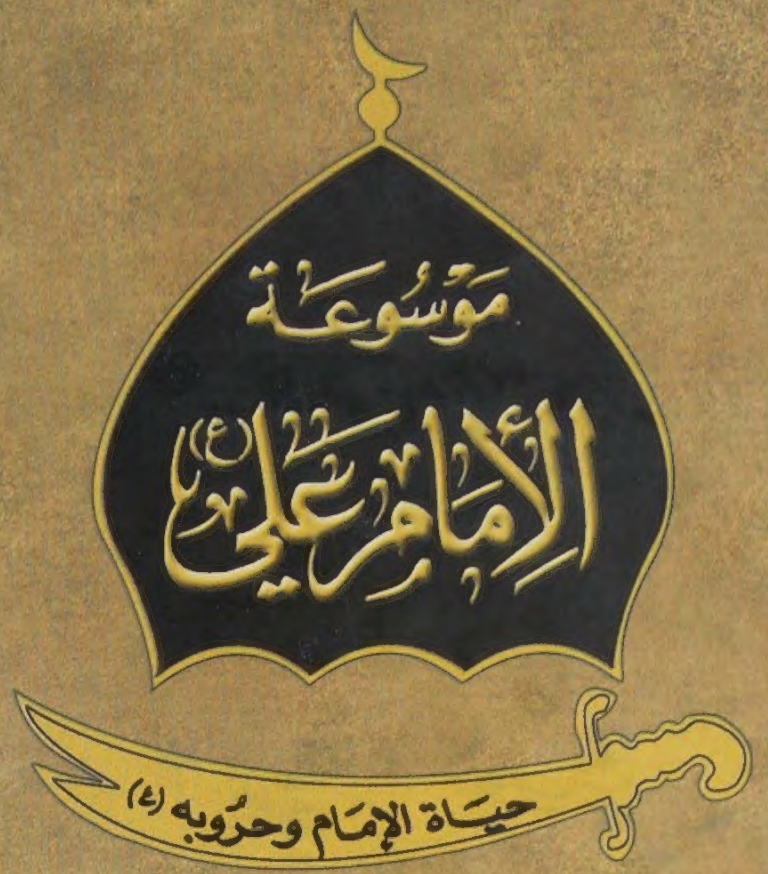 مَوْسُوعَة
الإِمَام عَلي (ع)
حيَاة الإمَام وحرُوبه (ع)